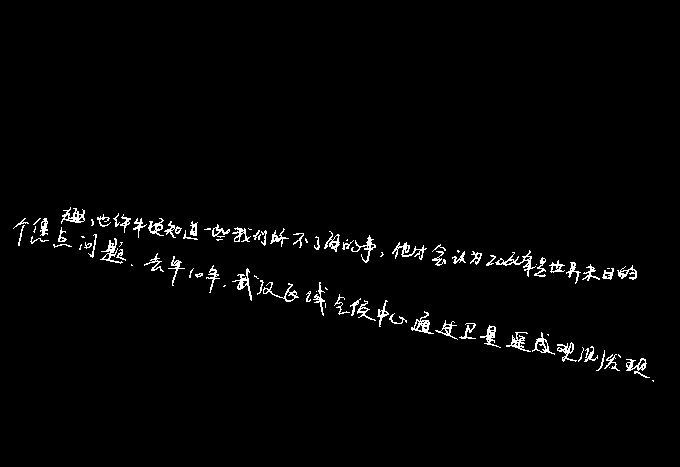 趣,也许牛顿知道一些我们所不了解的事,他才会认为2060年是世界末日的
个焦点问题.去年10年,武汉区域气候中心通过卫星遥感观测发现.